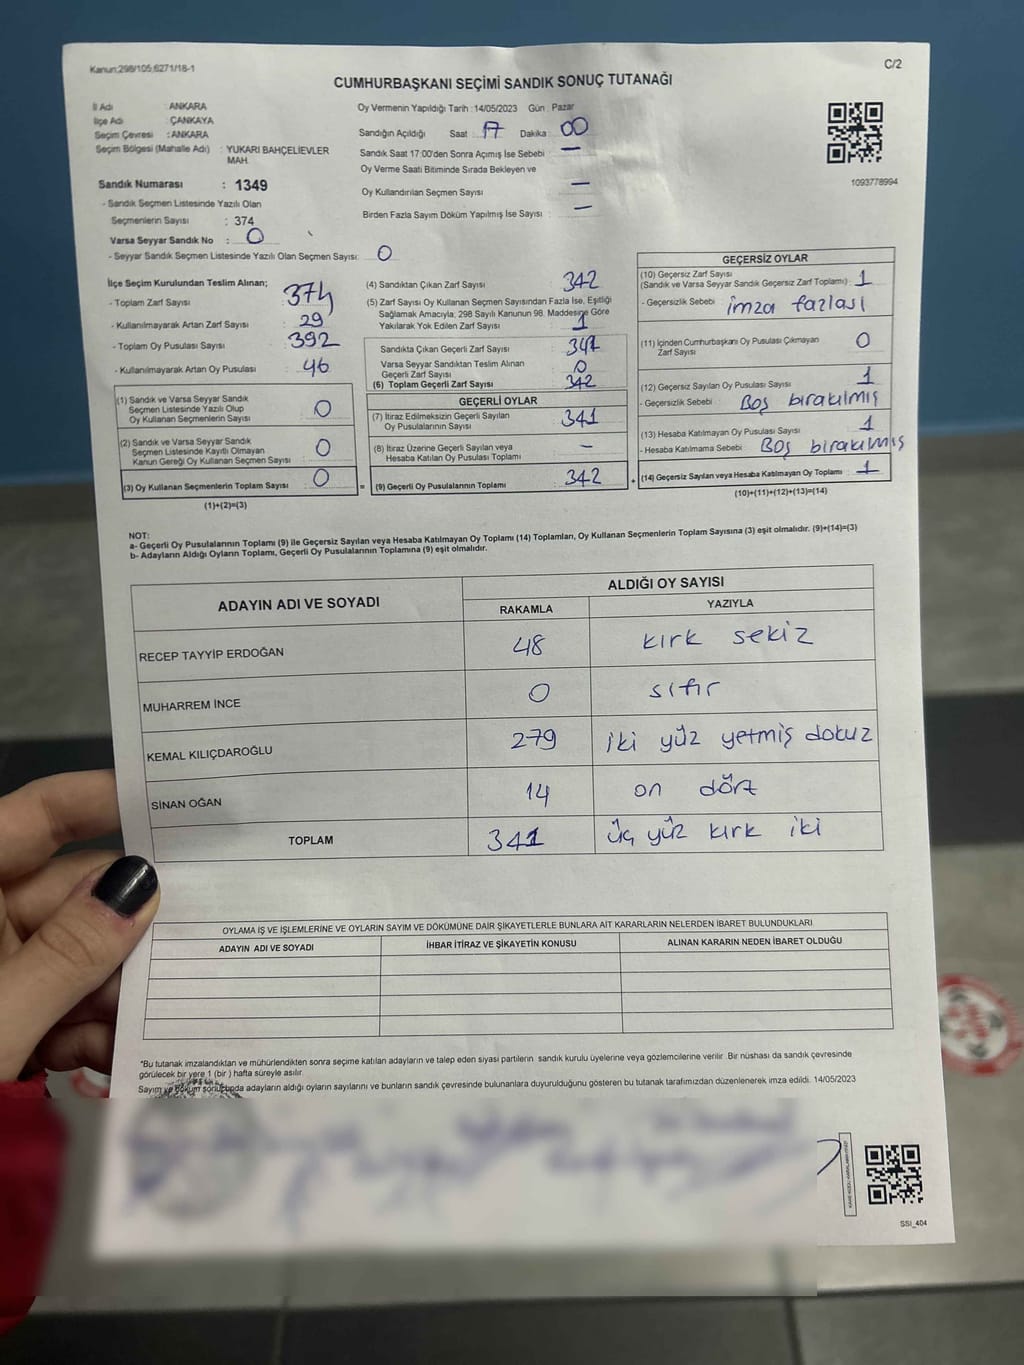 Kanun:298/105;6271/18-1
C/2
CUMHURBAŞKANI SEÇİMİ SANDIK SONUÇ TUTANAĞI
İl Adı : ANKARA
İlçe Adı : ÇANKAYA
Seçim Çevresi : ANKARA
Seçim Bölgesi (Mahalle Adı) : YUKARI BAHÇELİEVLER
MAH.
Sandık Numarası : 1349
- Sandık Seçmen Listesinde Yazılı Olan
Seçmenlerin Sayısı : 374
Varsa Seyyar Sandık No : 0
- Seyyar Sandık Seçmen Listesinde Yazılı Olan Seçmen Sayısı: 0
Oy Vermenin Yapıldığı Tarih : 14/05/2023 Gün : Pazar
Sandığın Açıldığı Saat : 17 Dakika : 00
Sandık Saat 17:00'den Sonra Açımış İse Sebebi : —
Oy Verme Saati Bitiminde Sırada Bekleyen ve
Oy Kullandırılan Seçmen Sayısı —
Birden Fazla Sayım Döküm Yapılmış İse Sayısı : —
1093778994
İlçe Seçim Kurulundan Teslim Alınan;
- Toplam Zarf Sayısı : 374
- Kullanılmayarak Artan Zarf Sayısı : 29
- Toplam Oy Pusulası Sayısı : 392
- Kullanılmayarak Artan Oy Pusulası : 46
(1) Sandık ve Varsa Seyyar Sandık
Seçmen Listesinde Yazılı Olup
Oy Kullanan Seçmenlerin Sayısı : 0
(2) Sandık ve Varsa Seyyar Sandık
Seçmen Listesinde Kayıtlı Olmayan
Kanun Gereği Oy Kullanan Seçmen Sayısı : 0
(3) Oy Kullanan Seçmenlerin Toplam Sayısı : 0
(1)+(2)=(3)
(4) Sandıktan Çıkan Zarf Sayısı : 342
(5) Zarf Sayısı Oy Kullanan Seçmen Sayısından Fazla İse, Eşitliği
Sağlamak Amacıyla, 298 Sayılı Kanunun 98. Maddesine Göre
Yakılarak Yok Edilen Zarf Sayısı : 1
Sandıkta Çıkan Geçerli Zarf Sayısı : 341
Varsa Seyyar Sandıktan Teslim Alınan
Geçerli Zarf Sayısı : 0
(6) Toplam Geçerli Zarf Sayısı : 342
GEÇERLİ OYLAR
(7) İtiraz Edilmeksizin Geçerli Sayılan
Oy Pusulalarının Sayısı : 341
(8) İtiraz Üzerine Geçerli Sayılan veya
Hesaba Katılan Oy Pusulası Toplamı : —
= (9) Geçerli Oy Pusulalarının Toplamı : 342
GEÇERSİZ OYLAR
(10) Geçersiz Zarf Sayısı
(Sandık ve Varsa Seyyar Sandık Geçersiz Zarf Toplamı) : 1
- Geçersizlik Sebebi : imza fazlası
(11) İçinden Cumhurbaşkanı Oy Pusulası Çıkmayan
Zarf Sayısı : 0
(12) Geçersiz Sayılan Oy Pusulası Sayısı : 1
- Geçersizlik Sebebi : Boş bırakılmış
(13) Hesaba Katılmayan Oy Pusulası Sayısı : 1
- Hesaba Katılmama Sebebi : Boş bırakılmış
+ (14) Geçersiz Sayılan veya Hesaba Katılmayan Oy Toplamı : 1
(10)+(11)+(12)+(13)=(14)
NOT:
a- Geçerli Oy Pusulalarının Toplamı (9) ile Geçersiz Sayılan veya Hesaba Katılmayan Oy Toplamı (14) Toplamları, Oy Kullanan Seçmenlerin Toplam Sayısına (3) eşit olmalıdır. (9)+(14)=(3)
b- Adayların Aldığı Oyların Toplamı, Geçerli Oy Pusulalarının Toplamına (9) eşit olmalıdır.
ADAYIN ADI VE SOYADI ALDIĞI OY SAYISI
RAKAMLA YAZIYLA
RECEP TAYYİP ERDOĞAN 48 kırk sekiz
MUHARREM İNCE 0 sıfır
KEMAL KILIÇDAROĞLU 279 iki yüz yetmiş dokuz
SİNAN OĞAN 14 on dört
TOPLAM 341 üç yüz kırk iki
OYLAMA İŞ VE İŞLEMLERİNE VE OYLARIN SAYIM VE DÖKÜMÜNE DAİR ŞİKAYETLERLE BUNLARA AİT KARARLARIN NELERDEN İBARET BULUNDUKLARI
ADAYIN ADI VE SOYADI İHBAR İTİRAZ VE ŞİKAYETİN KONUSU ALINAN KARARIN NEDEN İBARET OLDUĞU
*Bu tutanak imzalandıktan ve mühürlendikten sonra seçime katılan adayların ve talep eden siyasi partilerin sandık kurulu üyelerine veya gözlemcilerine verilir. Bir nüshası da sandık çevresinde
görülecek bir yere 1 (bir ) hafta süreyle asılır.
Sayım ve döküm sonucunda adayların aldığı oyların sayılarını ve bunların sandık çevresinde bulunanlara duyurulduğunu gösteren bu tutanak tarafımızdan düzenlenerek imza edildi. 14/05/2023
SSI_404